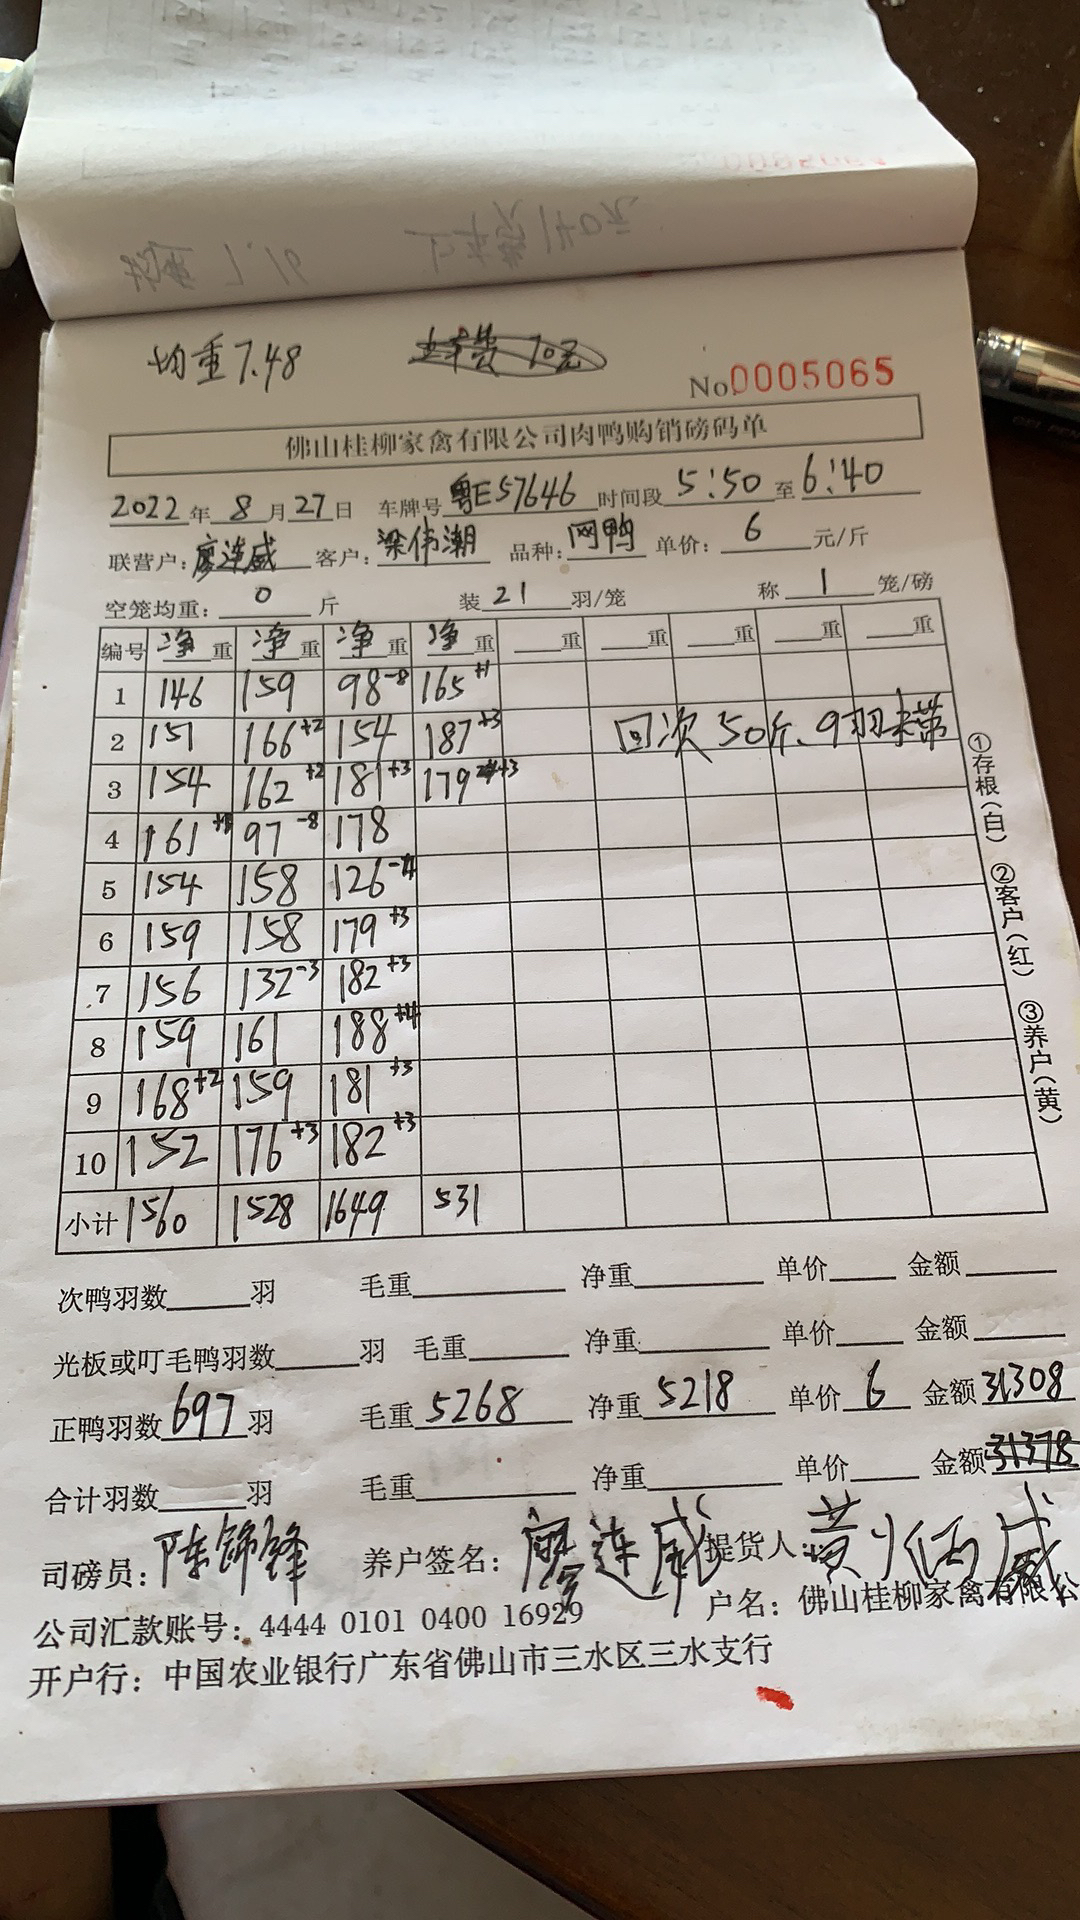 均重7.48 上车费 70元
No.0005065
佛山桂柳家禽有限公司肉鸭购销磅码单
2022年 8月27日 车牌号 粤E57646 时间段 5:50 至 6:40
联营户: 廖连威 客户: 梁伟潮 品种: 网鸭 单价: 6 元/斤
空笼均重: 0 斤 装 21 羽/笼 称 1 笼/磅
编号 净重 净重 净重 净重 重 重 重 重 重
1 146 159 98-8 165+1
2 151 166+2 154 187+3 回次 50斤、9羽未带
3 154 162+2 181+3 179+3
4 161 97-8 178
5 154 158 126-4
6 159 158 179+3
7 156 132-3 182+3
8 159 161 188+4
9 168+2 159 181+3
10 152 176+3 182+3
小计 1560 1528 1649 531
①存根(白) ②客户(红) ③养户(黄)
次鸭羽数 羽 毛重 净重 单价 金额
光板或叮毛鸭羽数 羽 毛重 净重 单价 金额
正鸭羽数 697 羽 毛重 5268 净重 5218 单价 6 金额 31308
合计羽数 羽 毛重 净重 单价 金额 31378
司磅员: 陈锦锋 养户签名: 廖连威 提货人: 黄
公司汇款账号: 4444 0101 0400 16929 户名: 佛山桂柳家禽有限公
开户行: 中国农业银行广东省佛山市三水区三水支行